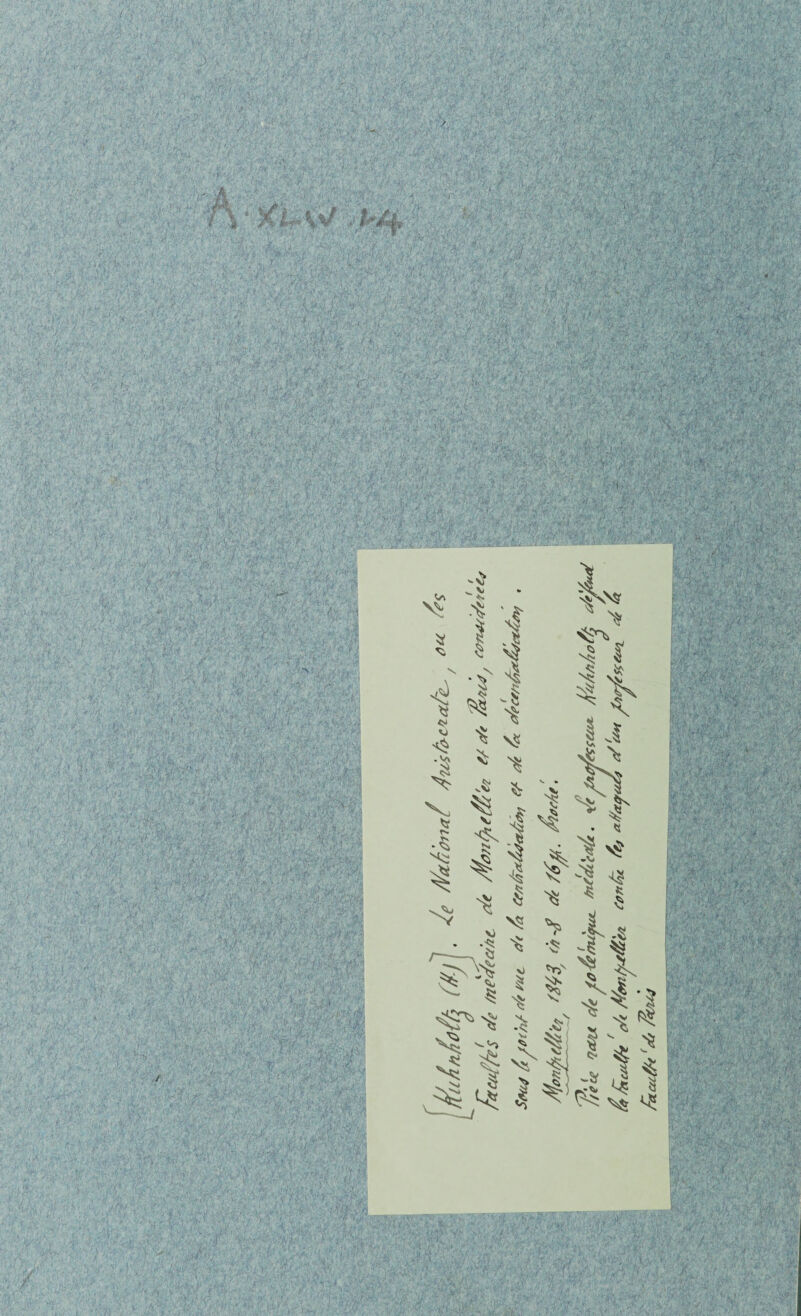 A. XLIV. 24
[Kuhnholtz (H.)]. Le National Aristocrate, ou les
Facultés de médecine de Montpellier et de Paris, considérées
sous le point de vue de la centralisation et de la décentralisation.
Montpellier, 1843, in-8 de 16 pp. broché.
Pièce rare de polémique médicale. Le professeur Kuhnholtz défend
la Faculté de Montpellier contre les attaques d'un professeur de la
Faculté de Paris